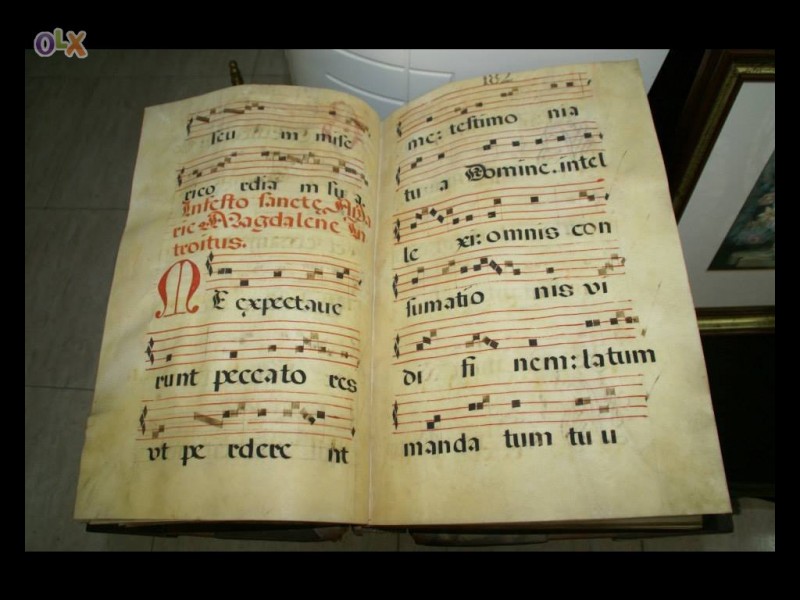 OLX
seu m mise
rico rdia m su a.
In festo sanctę Ma
rie Magdalene In
troitus.
ME ęxpectaue
runt peccato res
vt pe rdere nt
182
me: testimo nia
tu a Domine. intel
le xi: omnis con
sumatio nis vi
di fi nem: latum
manda tum tu u